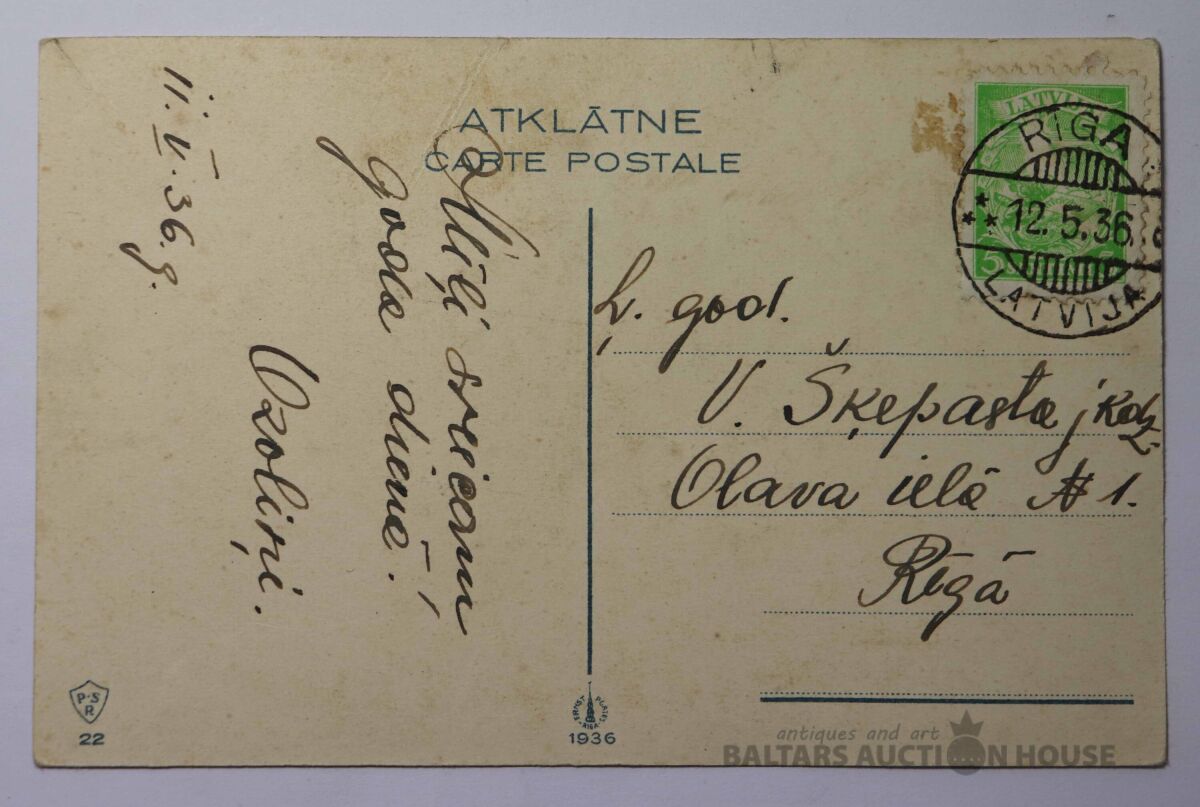 ATKLĀTNE
CARTE POSTALE
Mīļi sveicam
goda dienā!
Ozoliņi.
11.V.36.g.
LATVIJA
5
RĪGA
12.5.36.
LATVIJA
god.
V. Šķēpasta jkdz.
Olava ielā № 1.
Rīgā
P.S
R
22
ERNST PLATES
RIGA
1936
antiques and art
BALTARS AUCTION HOUSE